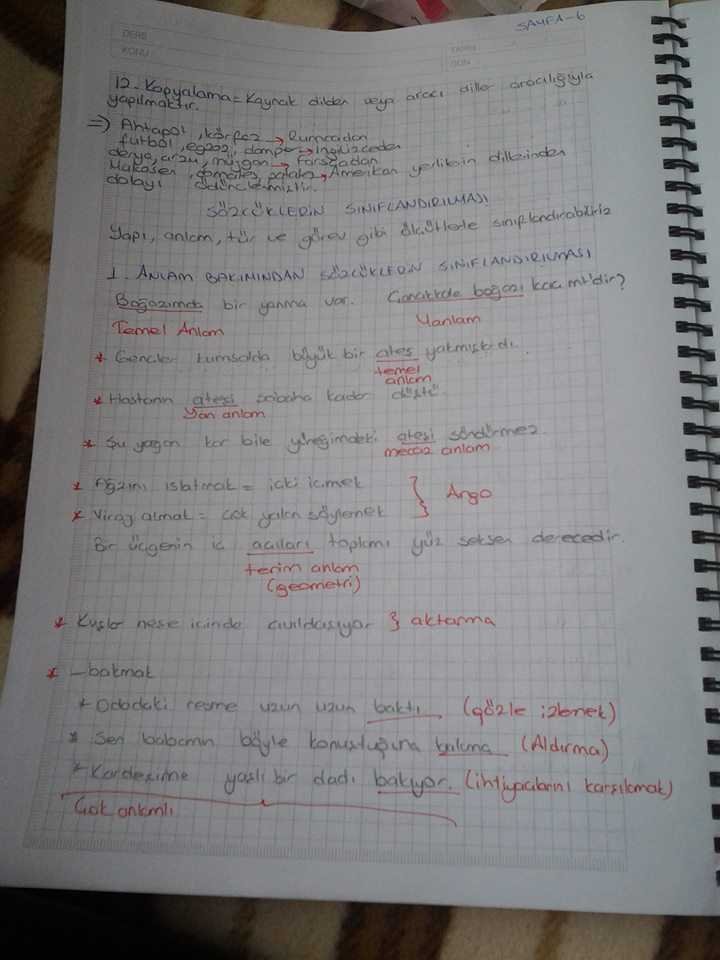 SAYFA-6
DERS
KONU
TARİH
GÜN
12- Kopyalama = Kaynak dilden veya aracı diller aracılığıyla
yapılmaktır.
=> Ahtapot, körfez → Rumcadan
futbol, egzoz, damper → İngilizceden
derya, arzu, müjgan → Farsçadan
Makosen, domates, patates → Amerikan yerlilerin dillerinden
dolayı ödünçlenmiştir.
SÖZCÜKLERİN SINIFLANDIRILMASI
Yapı, anlam, tür ve görev gibi ölçütlerle sınıflandırabiliriz
1. ANLAM BAKIMINDAN SÖZCÜKLERİN SINIFLANDIRILMASI
Boğazımda bir yanma var. Çanakkale boğazı kaç mt'dir?
Temel Anlam Yanlam
* Gençler kumsalda büyük bir ateş yakmıştıdı.
temel
anlam
* Hastanın ateşi sabaha kadar düştü.
Yan anlam
* Şu yağan kar bile yüreğimdeki ateşi söndürmez.
mecaz anlam
* Ağzını ıslatmak = içki içmek
* Viraj almak = çok yalan söylemek } Argo
Bir üçgenin iç açıları toplamı yüz seksen derecedir.
terim anlam
(geometri)
* Kuşlar neşe içinde cıvıldaşıyor } aktarma
* -bakmak
* Odadaki resme uzun uzun baktı (gözle izlemek)
* Sen babamın böyle konuştuğuna bakma (Aldırma)
* Kardeşime yaşlı bir dadı bakıyor. (ihtiyaçlarını karşılamak)
Çok anlamlı